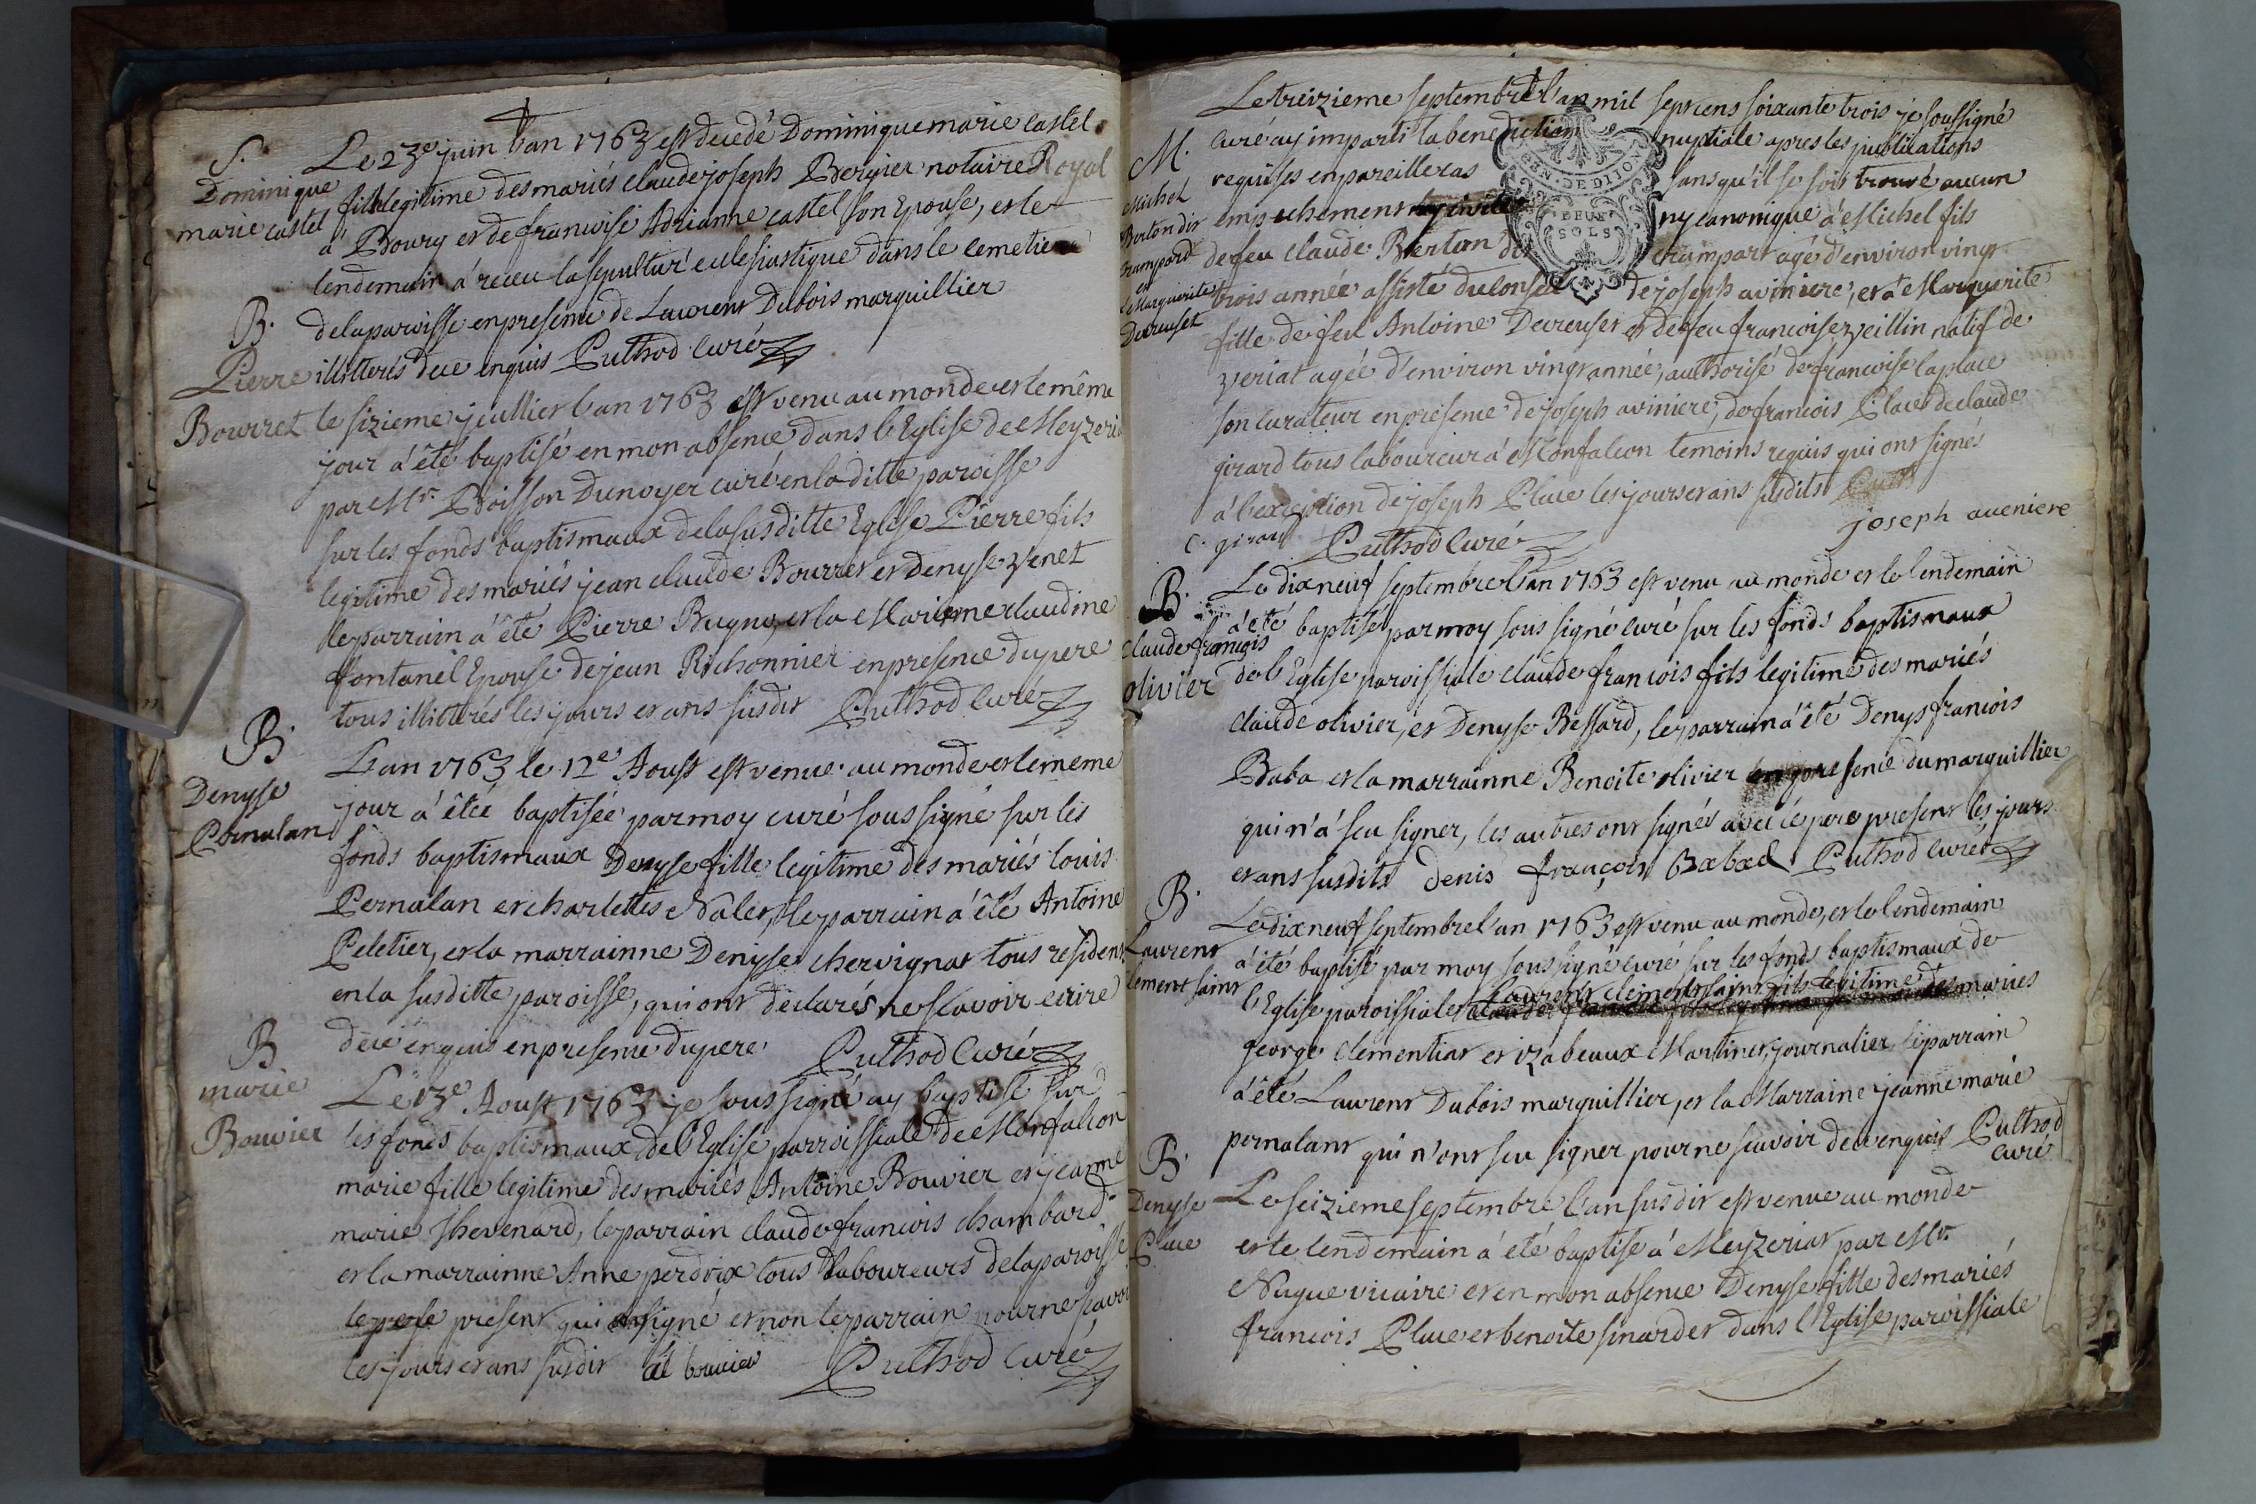 S.
Dominique
marie castel
Le 23e juin l'an 1763 est decedé Dominique marie castel
fils legitime des mariés claude joseph Bergier notaire Royal
à Bourg et de francoise Adrianne castel son Epouse, et le
lendemain à receu la sepulture eclesiastique dans le cemetiere
de la paroisse en presence de Laurent Dubois marguillier
illitterés de ce enquis Puthod curé
B.
Pierre
Bourret
le sizieme jeullier l'an 1763 est venu au monde et le même
jour à été baptisé en mon absence dans l'Eglise de Meyzeria
par Mr. Boisson Dunoyer curé en la ditte paroisse
sur les fonds baptismaux de la susditte Eglise Pierre fils
legitime des mariés jean claude Bourret et Denyse Venet
le parrain à été Pierre Bugno, et la Marienne claudine
fontanel Epouse de jean Richonnier en presence du pere
tous illitterés les jours et ans susdit Puthod Curé
B.
Denyse
Pernalan
L'an 1763 le 12e Aoust est venue au monde et le meme
jour à êtée baptisée par moy curé sous signé sur les
fonds baptismaux Denyse fille legitime des mariés louis
Pernalan et charlottes Nalet, le parrain à été Antoine
Peletier, et la marrainne Denyse chervignat tous residens
en la susditte paroisse, qui ont declarés ne scavoir ecrire
de ce enquis en presence du pere Puthod Curé
B
marie
Bouvier
Le 13e Aoust 1763 je sous signé ay baptisé sur
les fonds baptismaux de l'Eglise parroissiale de Monfalcon
marie fille legitime des mariés Antoine Bouvier et jeanne
marie thevenard, le parrain claude francois chambard
et la marrainne Anne perdrix tous laboureurs de la paroisse
le pere present qui a signé et non le parrain pour ne scavoi
les jours et ans susdit Puthod Curé
M.
Michel
Berton dit
crampard
et
Marguerite
Decreuset
Le treizieme septembre l'an mil sept cens soixante trois je soussigné
curé ay imparti la benediction nuptiale apres les publications
requises en pareille cas sans qu'il se soit trouvé aucun
empechement ny civil ny canonique à Michel fils
de feu claude Berton dit crampart agé d'environ vingt
GEN. DE DIJON
DEUX
SOLS
trois année assisté du conseil de joseph aviniere, et à Marguerite
fille de feu Antoine Decreuset et de feu francoise veillin natif de
zeriat agée d'environ vingt année, authorisé de francoise la place
son curateur en presence de joseph aviniere, de francois Place de claude
girard tous laboureur à Monfalcon temoins requis qui ont signés
à l'exception de joseph Place les jours et ans susdits
joseph aveniere
c. girard Puthod Curé
B.
claude francois
olivier
Le dix neuf septembre l'an 1763 est venu au monde et le lendemain
à été baptisé par moy sous signé curé sur les fonds baptismaux
de l'Eglise paroissiale claude francois fils legitime des mariés
claude olivier, et Denyse Bessard, le parrain à été Denys francois
Baba et la marrainne Benoite olivier en presence du marguillier
qui n'à seu signer, les autres ont signés avec le pere present les jours
et ans susdits denis françois Puthod curé
B.
Laurent
clement saint
Le dix neuf septembre l'an 1763 est venu au monde, et le lendemain
à été baptisé par moy sous signé curé sur les fonds baptismaux de
l'Eglise paroissiale Laurent clement saint fils legitime des mariés
george clementiat et izabeaux Martinet, journalier le parrain
à été Laurent Dubois marguillier, et la Marraine jeanne marie
pernalant qui n'ont seu signer pour ne scavoir de ce enquis Puthod
curé
B.
Denyse
Place
Le seizieme septembre l'an susdit est venue au monde
et le lendemain à été baptisé à Meyzeriat par Mr.
Nuque vicaire et en mon absence Denyse fille des mariés
francois Place et benoite sinardet dans l'Eglise paroissiale